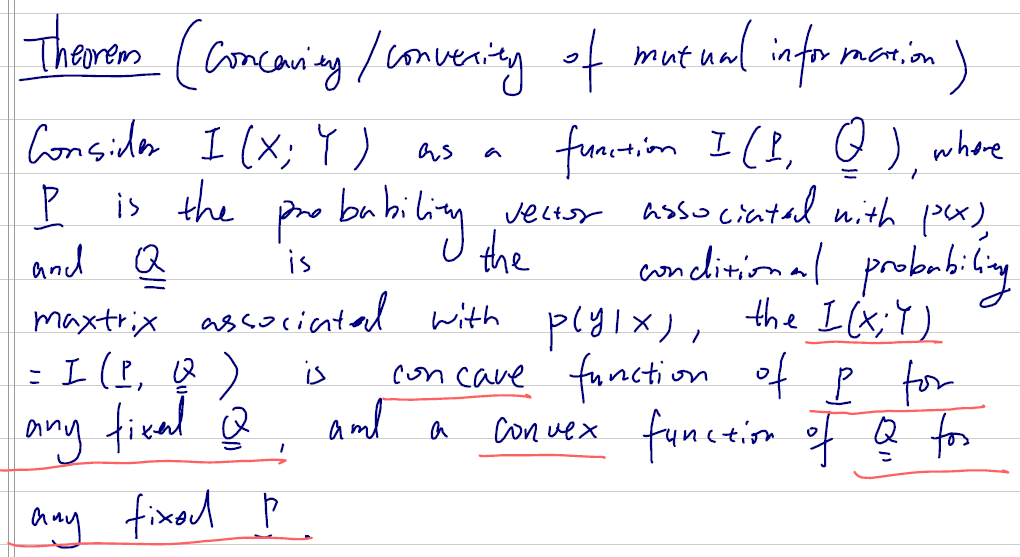 Theorem (Concavity/convexity of mutual information)
Consider I(X; Y) as a function I(P, Q), where
P is the probability vector associated with p(x),
and Q is the conditional probability
maxtrix associated with p(y|x), the I(X;Y)
= I(P, Q) is concave function of P for
any fixed Q, and a convex function of Q for
any fixed P.